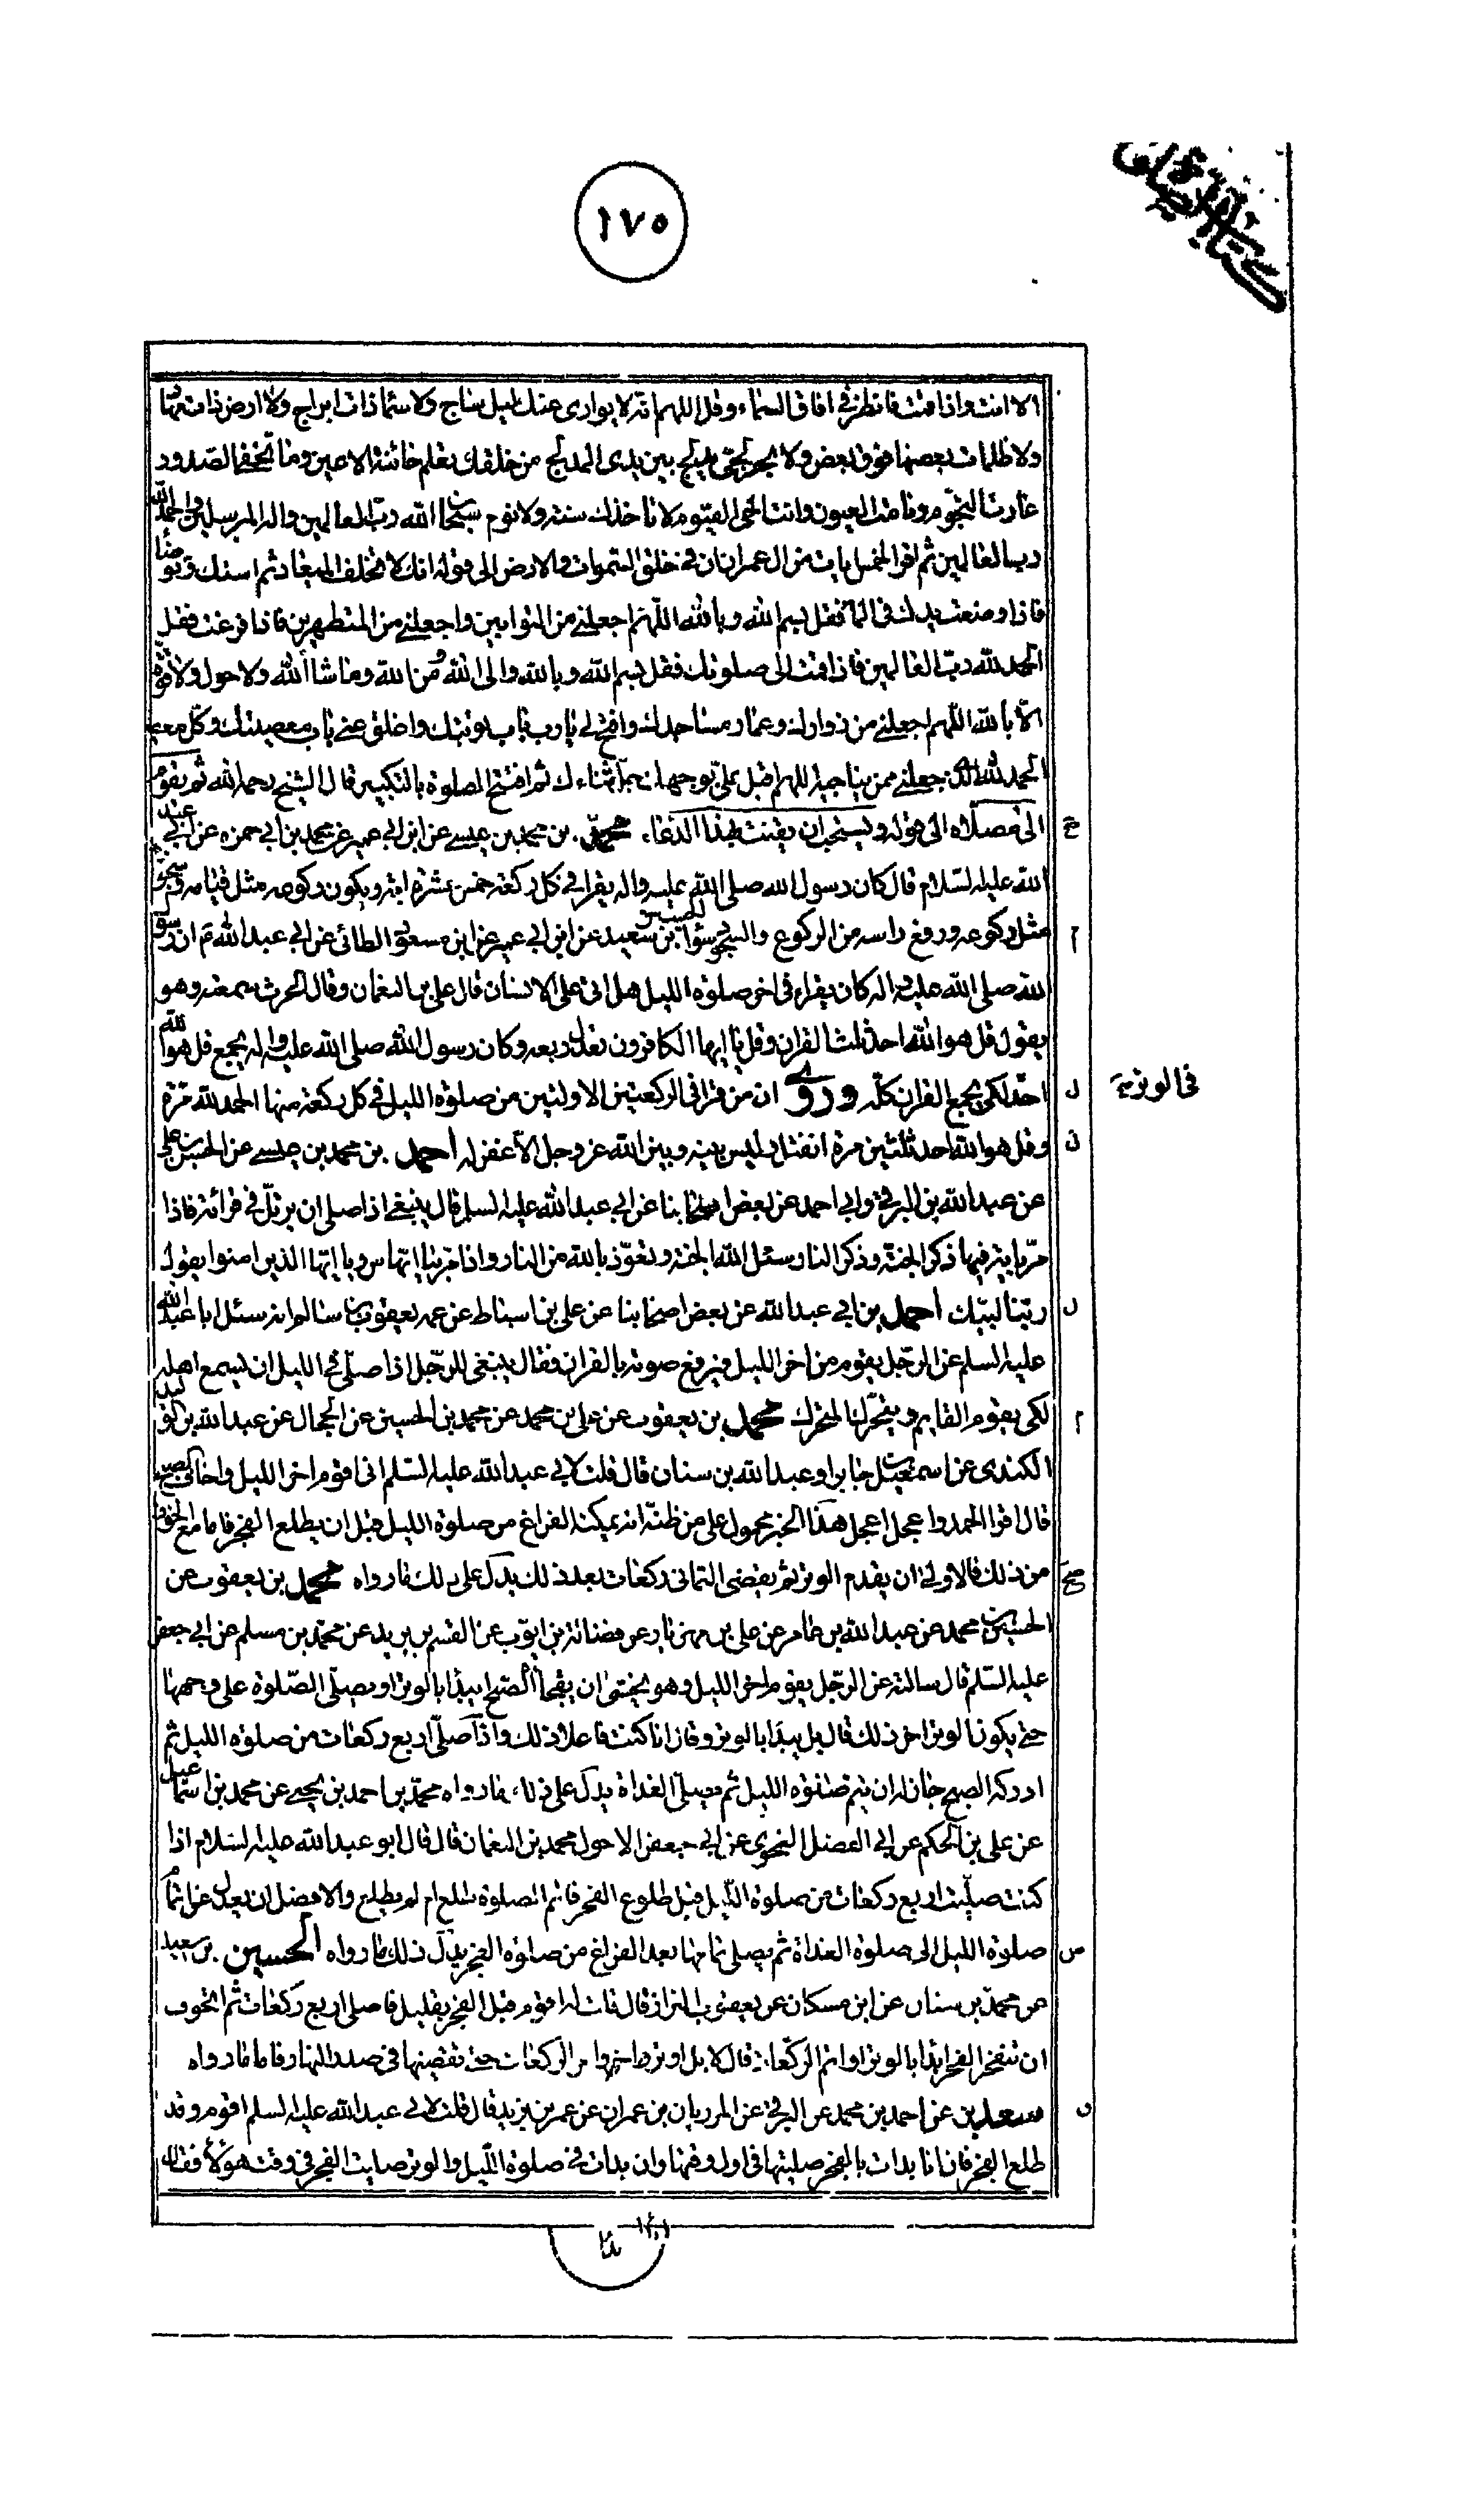 ١٧٥
الا انت واذا قمت فانظر في افاق السماء وقل اللهم انه لا يوارى عنك ليل ساج ولا سماء ذات ابراج ولا ارض ذات مهاد
ولا ظلمات بعضها فوق بعض ولا بحر لجى يدلج بين يدى المدلج من خلقك تعلم خائنة الاعين وما تخفى الصدور
غارت النجوم ونامت العيون وانت الحى القيوم لا تاخذك سنة ولا نوم سبحان الله رب العالمين واله المرسلين والحمد لله
رب العالمين ثم اقرا الخمس ايات من ال عمران ان في خلق السموات والارض الى قوله انك لا تخلف الميعاد ثم استك وتوضا
فاذا وضعت يدك في الماء فقل بسم الله وبالله اللهم اجعلني من التوابين واجعلني من المتطهرين فاذا فرغت فقل
الحمد لله رب العالمين فاذا قمت الى صلوتك فقل بسم الله وبالله والى الله ومن الله وما شاء الله ولا حول ولا قوة
الا بالله اللهم اجعلني من زوارك وعمار مساجدك وافتح لي يا رب باب توبتك واغلق عني باب معصيتك وكل معصية
الحمد لله الذى جعلني ممن يناجيه اللهم اقبل على بوجهك جل ثناءك ثم افتتح الصلوة بالتكبير قال الشيخ رحمه الله ثم يقوم
الى مصلاه الى قوله ويستحب ان يقنت بهذا الدعاء محمد بن محمد بن عيسى عن ابن ابي عمير عن محمد بن ابي حمزه عن ابي عبد
الله عليه السلام قال كان رسول الله صلى الله عليه واله يقرا في كل ركعة خمس عشرة اية ويكون ركوعه مثل قيامه وسجوده
مثل ركوعه ورفع راسه من الركوع والسجود سواء الحسين بن سعيد عن ابن ابي عمير عن ابن مسعود الطائي عن ابي عبد الله ع ان رسول
الله صلى الله عليه واله كان يقراء في اخر صلوة الليل هل اتى على الانسان قال علي بن النعمان وقال الحرث سمعته وهو
يقول قل هو الله احد ثلث القران وقل يا ايها الكافرون تعدل ربعه وكان رسول الله صلى الله عليه واله يجمع قل هو الله
احد لكى يجمع القران كله وروى ان من قرا في الركعتين الاوليتين من صلوة الليل في كل ركعة منها الحمد لله مرة
في الوتر
وقل هو الله احد ثلثين مرة انفتل وليس بينه وبين الله عز وجل الا غفر له احمد بن محمد بن عيسى عن الحسن بن علي
عن عبد الله بن البرقي وابي احمد عن بعض اصحابنا عن ابي عبد الله عليه السلم قال ينبغي اذا صلى ان يرتل في قرائته فاذا
مر باية فيها ذكر الجنة وذكر النار سئل الله الجنة وتعوذ بالله من النار واذا مر بيا ايها الناس ويا ايها الذين امنوا يقول
ربنا لبيك احمد بن ابي عبد الله عن بعض اصحابنا عن علي بن اسباط عن عمه يعقوب بن سالم انه سئل ابا عبد الله
عليه السلم عن الرجل يقوم من اخر الليل فيرفع صوته بالقران فقال ينبغي للرجل اذا صلى في الليل ان يسمع اهله
لكى يقوم القايم ويتحرك المتحرك محمد بن يعقوب عن علي بن محمد عن محمد بن الحسين عن الحجال عن عبد الله بن الوليد
الكندى عن اسمعيل بن جابر او عبد الله بن سنان قال قلت لابي عبد الله عليه السلم اني اقوم اخر الليل واخاف الصبح
قال اقرا الحمد واعجل اعجل هذا الخبر محمول على من ظن انه يمكنه الفراغ من صلوة الليل قبل ان يطلع الفجر فاما مع الخوف
من ذلك فالاولى ان يقدم الوتر ثم يقضى الثماني ركعات بعد ذلك يدل على ذلك ما رواه محمد بن يعقوب عن
الحسين بن محمد عن عبد الله بن عامر عن علي بن مهزيار عن فضالة بن ايوب عن القسم بن بريد عن محمد بن مسلم عن ابي جعفر
عليه السلم قال سالته عن الرجل يقوم اخر الليل وهو يخشى ان يفجاه الصبح ايبدا بالوتر او يصلى الصلوة على وجهها
حتى يكون الوتر اخر ذلك قال بل يبدا بالوتر وقال انا كنت فاعلا ذلك واذا صلى اربع ركعات من صلوة الليل ثم
ادركه الصبح جاز له ان يتم صلوة الليل ثم يصلى الغداة يدل على ذلك ما رواه محمد بن احمد بن يحيى عن محمد بن اسماعيل
عن علي بن الحكم عن ابي الفضل النحوى عن ابي جعفر الاحول محمد بن النعمان قال قال ابو عبد الله عليه السلام اذا
كنت صليت اربع ركعات من صلوة الليل قبل طلوع الفجر فاتم الصلوة طلع ام لم يطلع والافضل ان يعدل عن اتمام
صلوة الليل الى صلوة الغداة ثم يصلى تمامها بعد الفراغ من صلوة الفجر يدل ذلك ما رواه الحسين بن سعيد
عن محمد بن سنان عن ابن مسكان عن يعقوب البزاز قال قلت له اقوم قبل الفجر بقليل فاصلى اربع ركعات ثم اتخوف
ان ينفجر الفجر ابدا بالوتر او اتم الركعات قال لا بل اوتر واخر الركعات حتى تقضيها في صدر النهار فاما ما رواه
سعد بن عن احمد بن محمد عن البرقي عن المرزبان بن عمران عن عمر بن يزيد قال قلت لابي عبد الله عليه السلم اقوم وقد
طلع الفجر فان انا بدات بالفجر صليتها في اول وقتها وان بدات في صلوة الليل والوتر صليت الفجر في وقت هؤلاء فقال